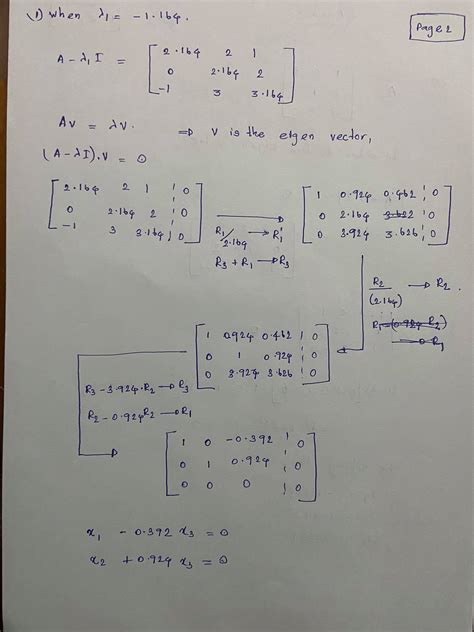 1) When λ₁ = -1.164.
Page 2
A-λ₁I = [ 2.164 2 1
0 2.164 2
-1 3 3.164 ]
Av = λv. ⇒ v is the eigen vector,
(A-λI).v = 0
[ 2.164 2 1 ¦ 0
0 2.164 2 ¦ 0
-1 3 3.164 ¦ 0 ]
R₁/2.164 → R₁
R₃ + R₁ → R₃
[ 1 0.924 0.462 ¦ 0
0 2.164 ¦ 0
0 3.924 3.626 ¦ 0 ]
R₂/(2.164) → R₂
R₁-(0.924 R₂) → R₁
[ 1 0.924 0.462 ¦ 0
0 1 0.924 ¦ 0
0 3.924 3.626 ¦ 0 ]
R₃ - 3.924.R₂ → R₃
R₂ - 0.924R₂ → R₁
[ 1 0 -0.392 ¦ 0
0 1 0.924 ¦ 0
0 0 0 ¦ 0 ]
x₁ - 0.392 x₃ = 0
x₂ + 0.924 x₃ = 0